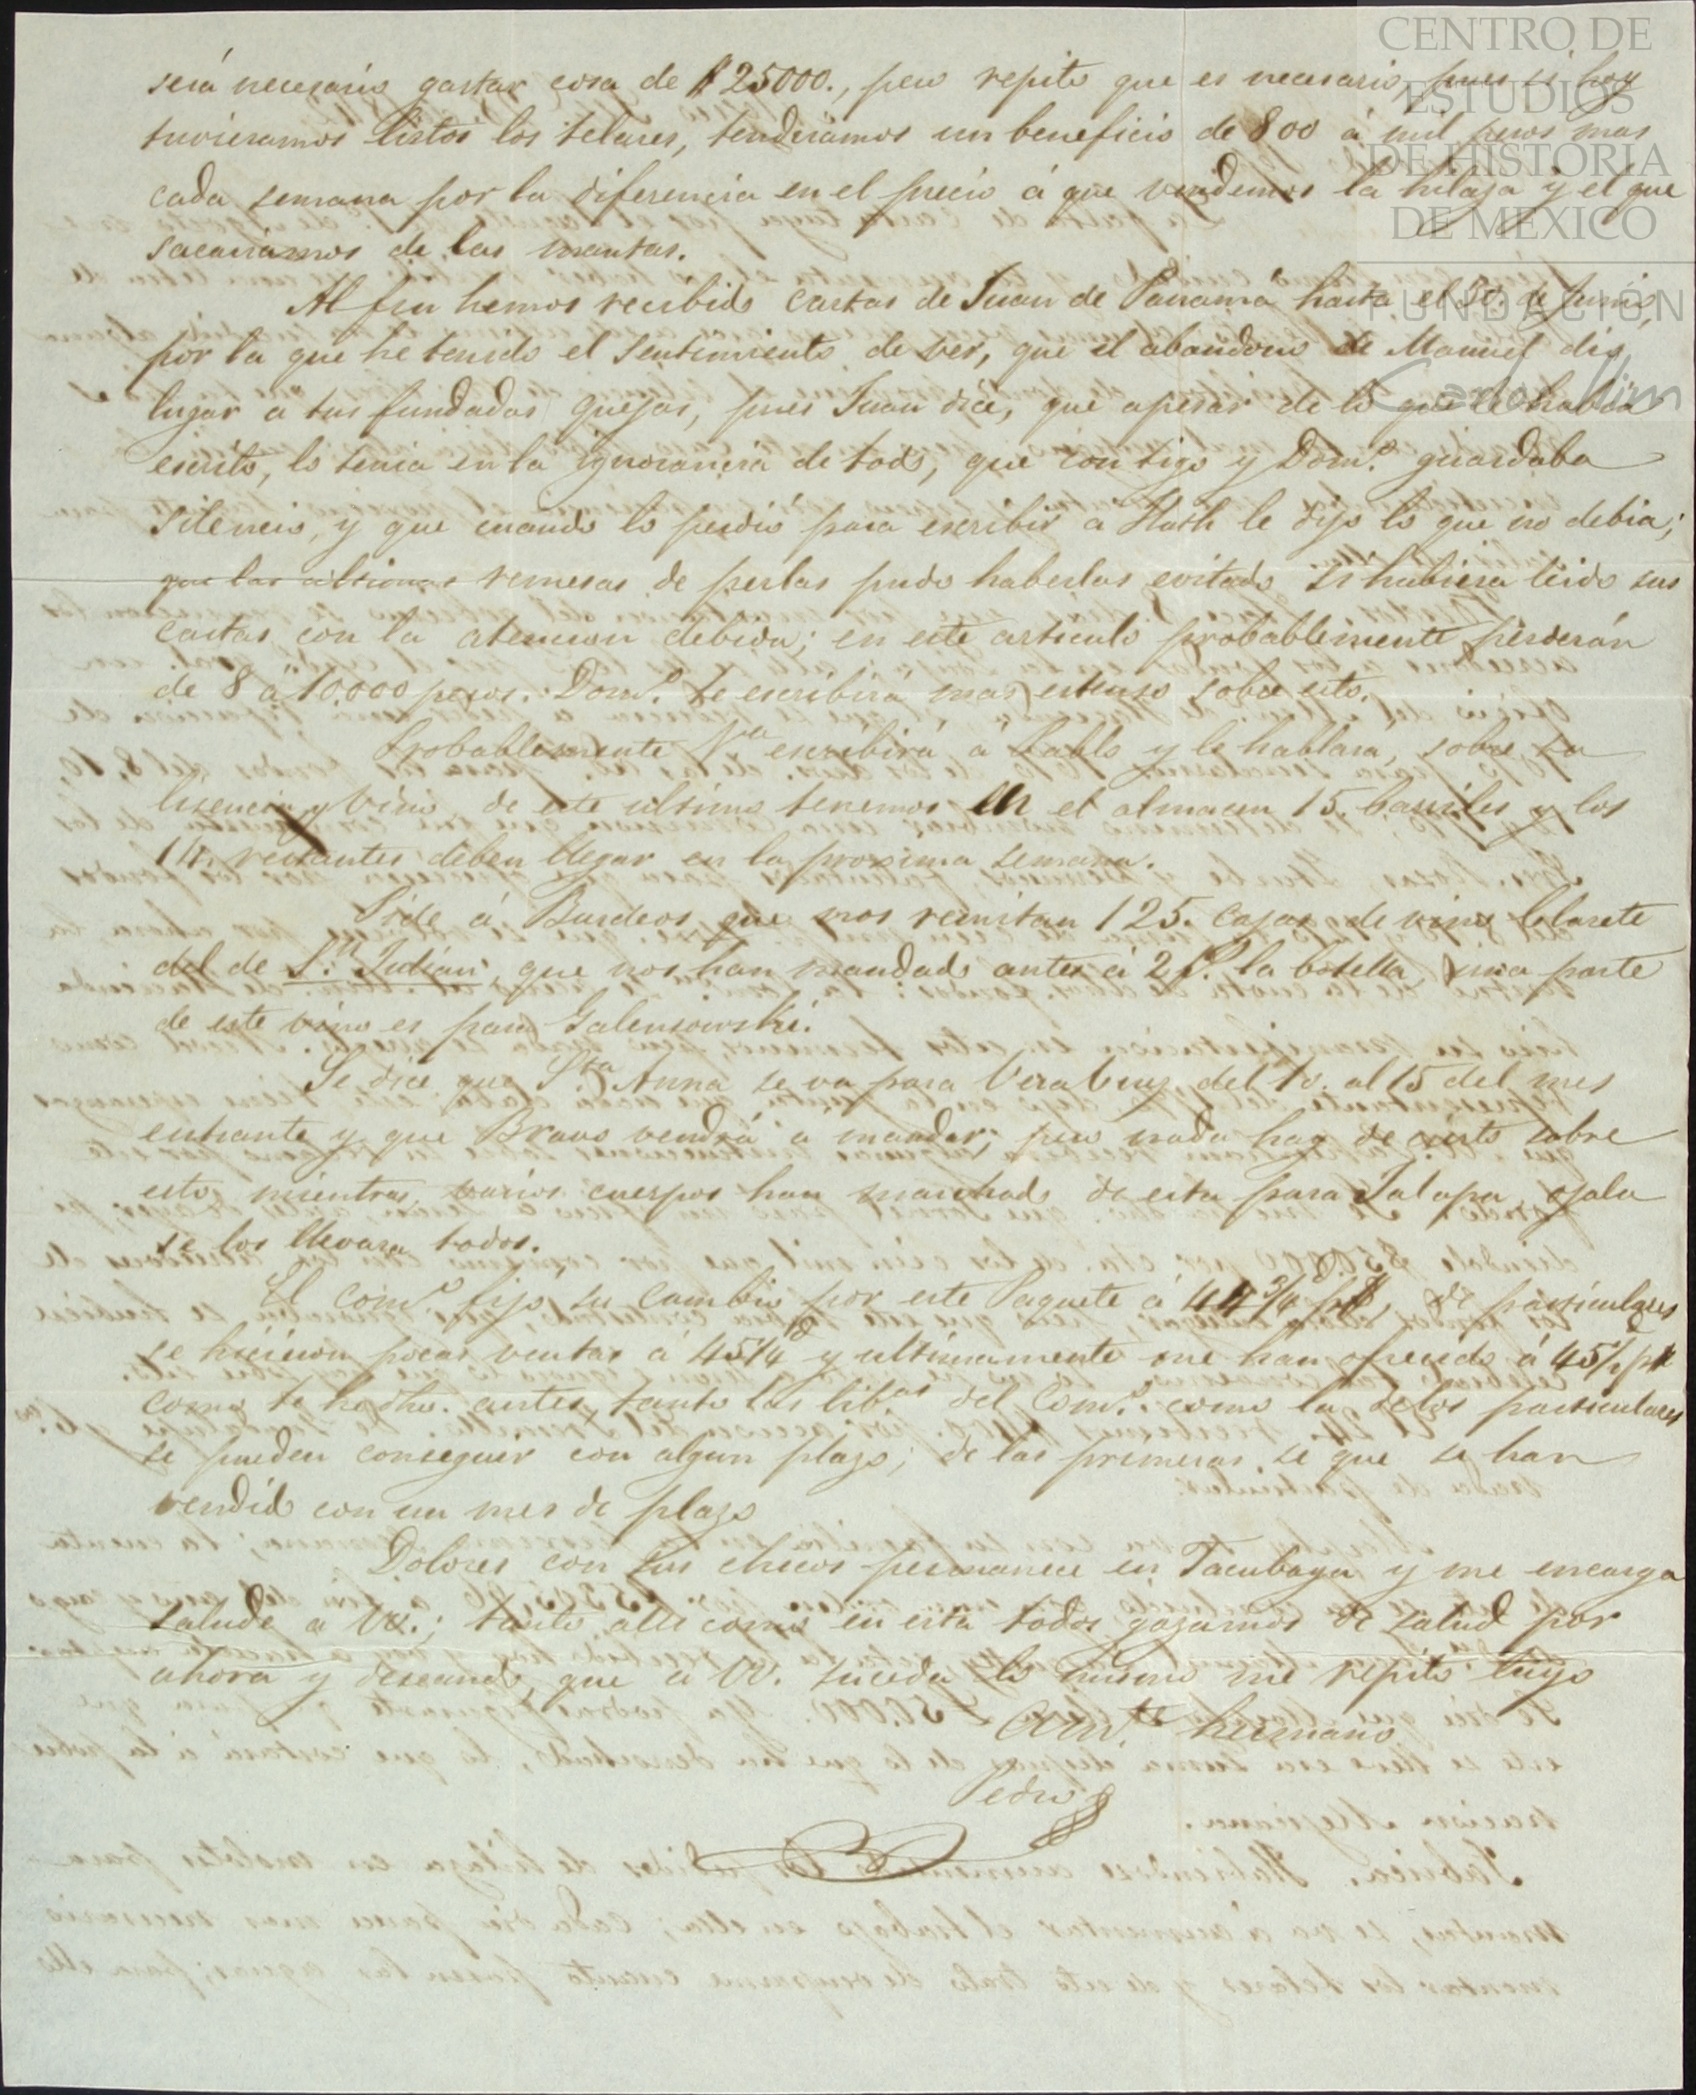 CENTRO DE
ESTUDIOS
DE HISTORIA
DE MEXICO
FUNDACIÓN
Carlos Slim
será necesario gastar cosa de $25000., pero repito que es necesario, pues si hoy
tuvieramos listos los telares, tendriamos un beneficio de 800 á mil pesos mas
cada semana por la diferencia en el precio á que vendemos la hilaza y el que
sacariamos de las mantas.
Al fin hemos recibido cartas de Juan de Panamá hasta el 30. de Junio,
por la que he tenido el sentimiento de ver, que el abandono de Manuel dio
lugar a tus fundadas quejas, pues Juan dice, que apesar de lo que le habia
escrito, lo tenia en la ignorancia de todo, que contigo y Dom.º guardaba
silencio, y que cuando lo pidió para escribir a Huth le dijo lo que no debia;
que las ultimas remesas de perlas pudo haberlas evitado si hubiera leido sus
cartas con la atencion debida; en este articulo probablemente perderán
de 8 á 10.000 pesos. Dom.º te escribirá mas estenso sobre esto.
Probablemente escribirá á Pablo y le hablará, sobre su
licencia y vino, de este ultimo tenemos en el almacen 15. barriles y los
14. restantes deben llegar en la proxima semana.
Pide á Burdeos que nos remitan 125. cajas de vino Clarete
del de S.n Julian, que nos han mandado antes á 2 f.s la botella, una parte
de este vino es para Galenzowski.
Se dice que Sta Anna se va para Vera Cruz del 10. al 15 del mes
entrante y que Bravo vendrá a mandar; pero nada hay de cierto sobre
esto, mientras varios cuerpos han marchado de esta para Jalapa, ojala
se los llevara todos.
El Com.º fijó su cambio por este Paquete á 44 3/4 p$, de particulares
se hicieron pocas ventas á 45 1/4 y ultimamente me han ofrecido á 45 1/2 p$
como te he dho. antes, tanto las lib.as del Com.º como la de los particulares
se pueden conseguir con algun plazo; de las primeras se que se han
vendido con un mes de plazo
Dolores con sus chicos permanece en Tacubaya y me encarga
salude a VV.; tanto alli como en esta todos gozamos de salud por
ahora y deseando que a VV. suceda lo mismo me repito tuyo
Am.te hermano
Pedro